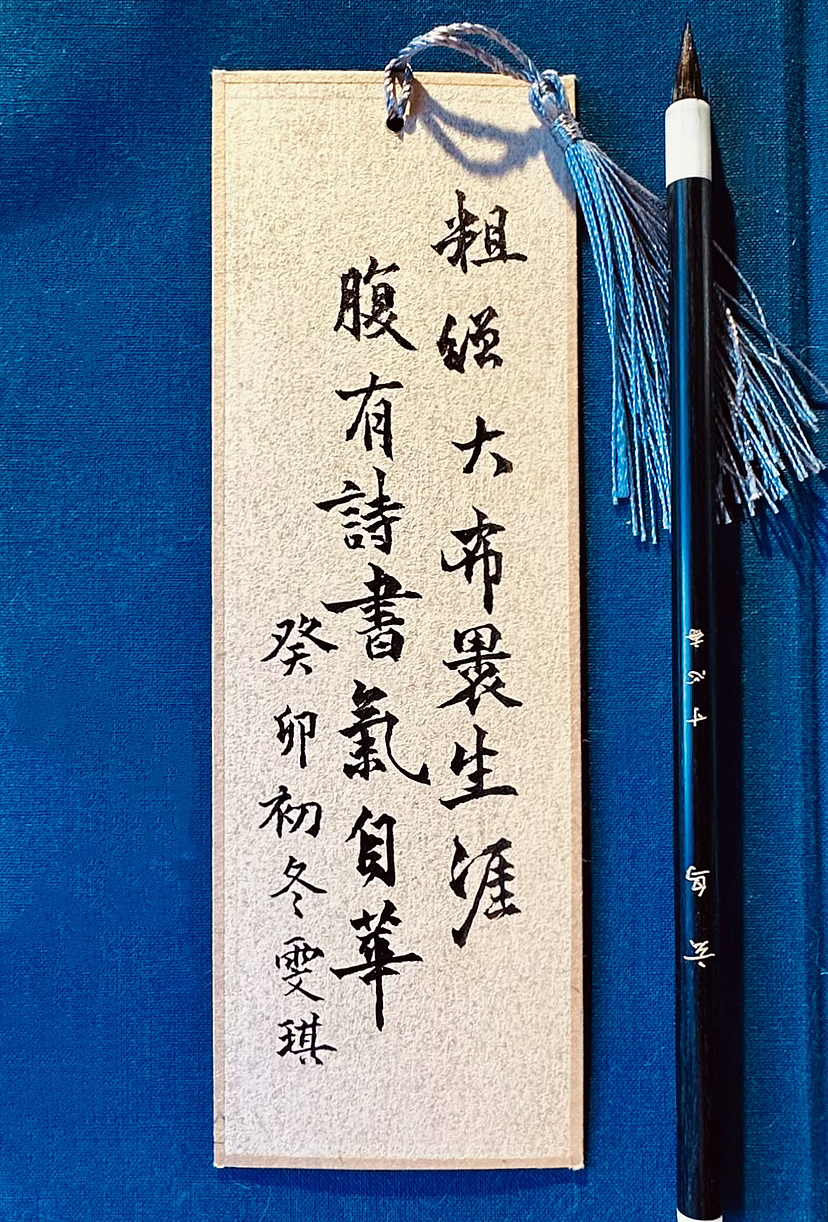 粗繒大布裹生涯
腹有詩書氣自華
癸卯初冬雯琪